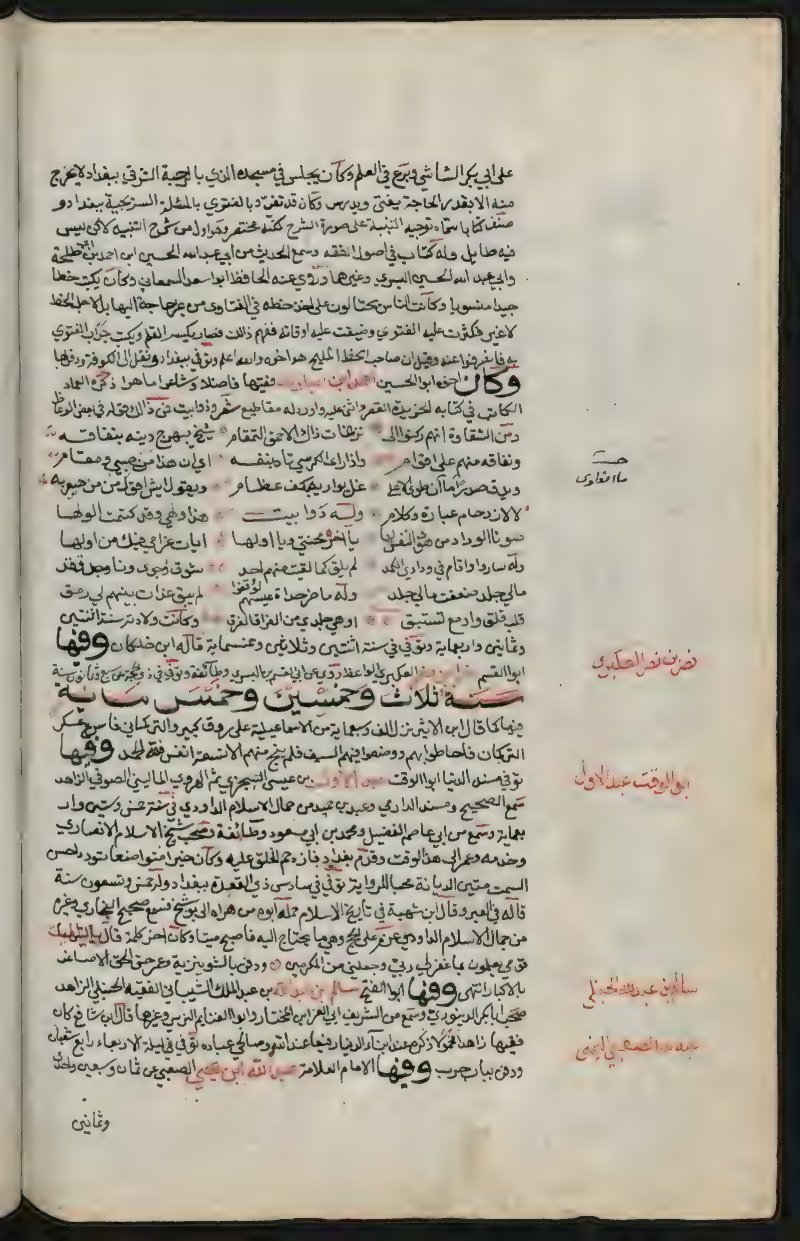 على ابي بكر الشاشي وبرع في العلم وكان يجلس في مسجده الذي بالرحبة الشرقي ببغداد لا يخرج
منه الا بقدر الحاجة يفتي ويدرس وكان قد تفرد بالفتوي بالمسئلة السريجية ببغداد و
صنف كتابا سماه توجيه التنبيه على صورة الشرح لكنه مختصر وهو اول من شرح التنبيه لاكن ليس
فيه طايل وله كتاب في اصول الفقه وسمع الحديث من ابي عبد الله الحسين ابن احمد بن طلحة
وابي عبد الله الحسين البسري وغيرهما وروي عنه الحافظ ابو سعد السمعاني وكان يكتب خطا
جيدا منسوبا وكانت الناس يحتالون على اخذ خطه في الفتاوى من غير حاجة اليها بل لاجل الخط
لا غير فكثرت عليه الفتوي وضيقت عليه اوقاته ففهم ذالك فصار يكسر القلم ويكتب جواب الفتوي
به فاقصروا عنه وقيل ان صاحب الخط المليح هو اخوه والله اعلم وتوفي ببغداد ونقل الى الكوفة ودفن بها
وكان اخوه ابو الحسين احمد ابن فقيها فاضلا وشاعرا ماهرا ذكره العماد
الكاتب في كتابه الخريدة واثنى عليه واورد له مقاطيع شعر ودوبيت فمن ذالك قوله في بعض الوعاظ
ومن الشقاوة انهم ركنوا الى نزغات ذاك الاحمق التمتام شيخ يبهرج دينه بنفاقه
ونفاقه منهم على اقوام واذا راى الكرسي تاه بنفسه اي ان هذا منصبي ومقامي
ويدق صدرا ما انطوى الا على غل يواريه بكف عظام ويقول ايش اقول من حصر به
لا لازدحام عبارة وكلام وله دوا بيت هذا ولهي وكم كتمت الولها
صونا لوداد من هوى النفس لها يا اخر محنتي ويا اولها ايات غرامي فيك من اولها
وله ساروا واقام في فؤادي الكمد لم يلق كما لقيت منهم احد شوق وجوى ونار وجد تقد
مالي جلد ضعفت مالي جلد وله ما ضر حداة عيسهم لو رفقوا لم يبق غداة بينهم لي رمق
قلب قلق وادمع تستبق اوهى جلدي من الفراق الفرق وكانت ولادته سنة اثنتين
وثمانين واربعماية وتوفي في سنة اثنتين وثلاثين وخمسماية قاله ابن خلكان وفيها
ابو القسم العكبري الواعظ روى عن ابي القسم بن البسري وطائفة وتوفي في ذي الحجة عن سبع وثمانين سنة
سنة ثلاث وخمسين وخمس ماية
فيها كما قال ابن الاثير نزل الف وسبعماية من الاسماعيلية على روق كبير والتركماني فاسرع عسكر
التركمان فاحاطوا بهم ووضعوا فيهم السيف فلم ينج منهم الا تسعة انفس فلله الحمد وفيها
توفي مسند الدنيا ابو الوقت عبد الاول بن عيسى السجزي ثم الهروي الماليني الصوفي الزاهد
سمع الصحيح ومسند الدارمي وعبد بن حميد من جمال الاسلام الداودي في سنة خمس وستين وار
بعماية وسمع من ابي عاصم الفضيل ومحمد بن ابي مسعود وطائفة وصحب شيخ الاسلام الانصاري
وخدمه وعمر الى هذا الوقت وقدم بغداد فازدحم الخلق عليه وكان خيرا متواضعا متودد حسن
السمت متين الديانة محبا للرواية توفي في سادس ذي القعدة ببغداد وله خمس وتسعون سنة
قاله في العبر وقال ابن شهبة في تاريخ الاسلام حمله ابوه من هراه الى بوشنج فسمع صحيح البخاري وغيره
من جمال الاسلام الداودي عزم على الحج وهيا ما يحتاج اليه فاصبح ميتا وكان اخر كلمة قال يا ليت
قومي يعلمون بما غفر لي ربي وجعلني من المكرمين ودفن بالشونيزية وعمر حتى الحق الاصاغر
بالاكابر انتهى وفيها ابو الفتح سالم بن عبد الله بن عبد الملك الشيباني الفقيه الحنبلي الزاهد
صحب ابا بكر الدينوري وسمع من الشريف ابي العز ابن المختار وابو الغنايم النرسي وغيرهما قال ابن شافع كان
فقيها زاهدا مخمولا ذكره عند ابناء الدنيا رفيعا عند الله وصالحي عباده توفي في ليلة الاربعاء رابع شعبان
ودفن بباب حرب وفيها الامام العلامة عبد الله ابن يحيى الصعبي عن ثمان وسبعين وله
وثمانين
نصر بن نصر العكبري
ابو الوقت عبد الاول
سالم بن عبد الله الحنبلي
عبد الله الصعبي اليمني